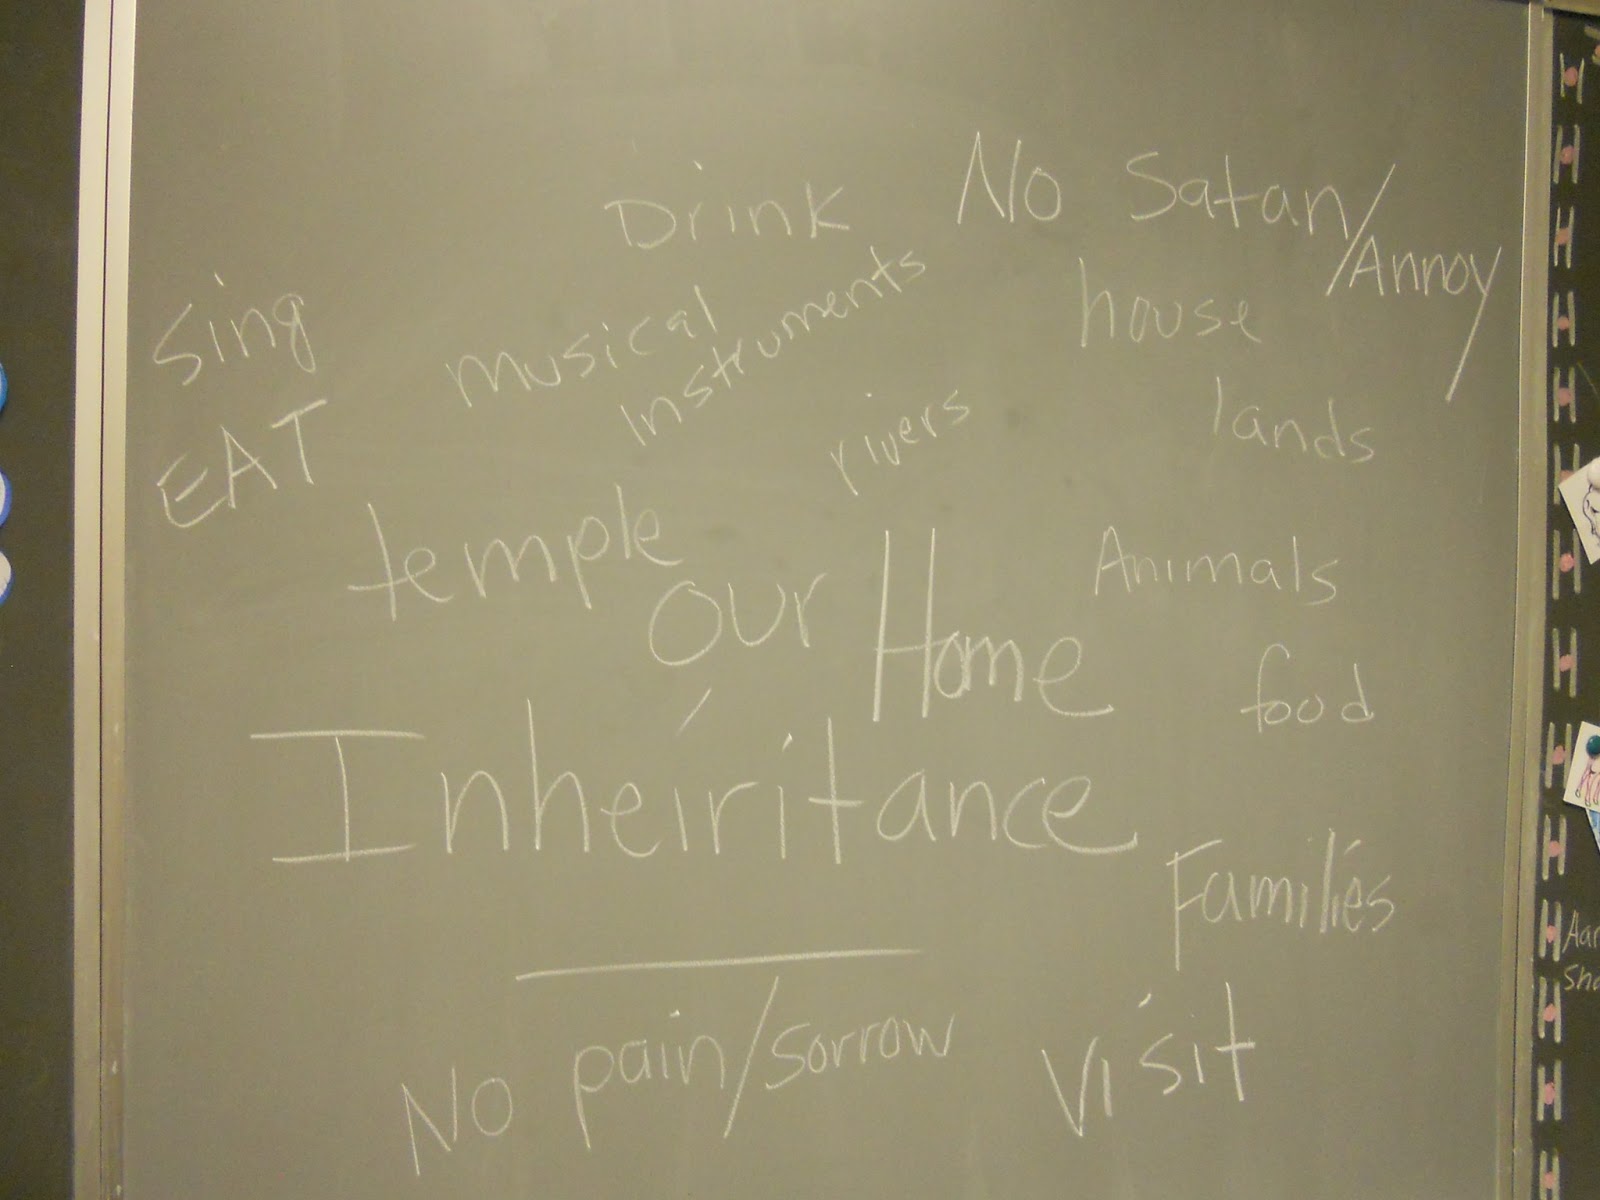 Drink
No Satan/
Annoy
Sing
musical
instruments
house
EAT
rivers
lands
temple
Our Home
Animals
food
Inheiritance
Families
No pain/sorrow
Visit